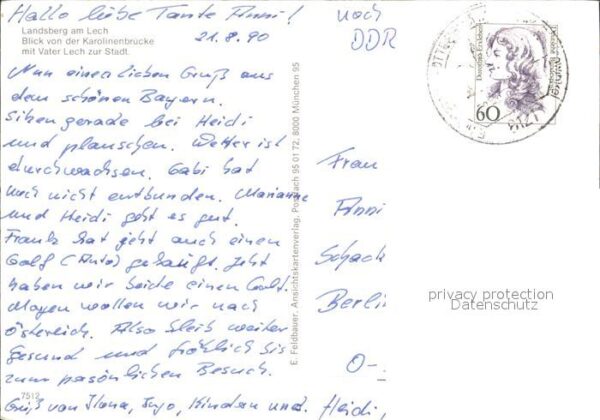 Hallo liebe Tante Anni!
21.8.90
Landsberg am Lech
Blick von der Karolinenbrücke
mit Vater Lech zur Stadt.
Nun einen lieben Gruß aus
dem schönen Bayern.
Sitzen gerade bei Heidi
und planschen. Wetter ist
durchwachsen. Gabi hat
noch nicht entbunden. Marianne
und Heidi geht es gut.
Frank hat jetzt auch einen
Golf (Auto) gekauft. Jetzt
haben wir beide einen Golf.
Morgen wollen wir nach
Österreich. Also bleib weiter
gesund und fröhlich bis
zum persönlichen Besuch.
7512
Gruß von Ilona, Ingo, Kindern und Heidi,
E. Feldbauer, Ansichtskartenverlag, Postfach 95 01 72, 8000 München 95
nach
DDR
Dorothea Erxleben
60
Frau
Anni
Schack
Berlin
O-.
privacy protection
Datenschutz